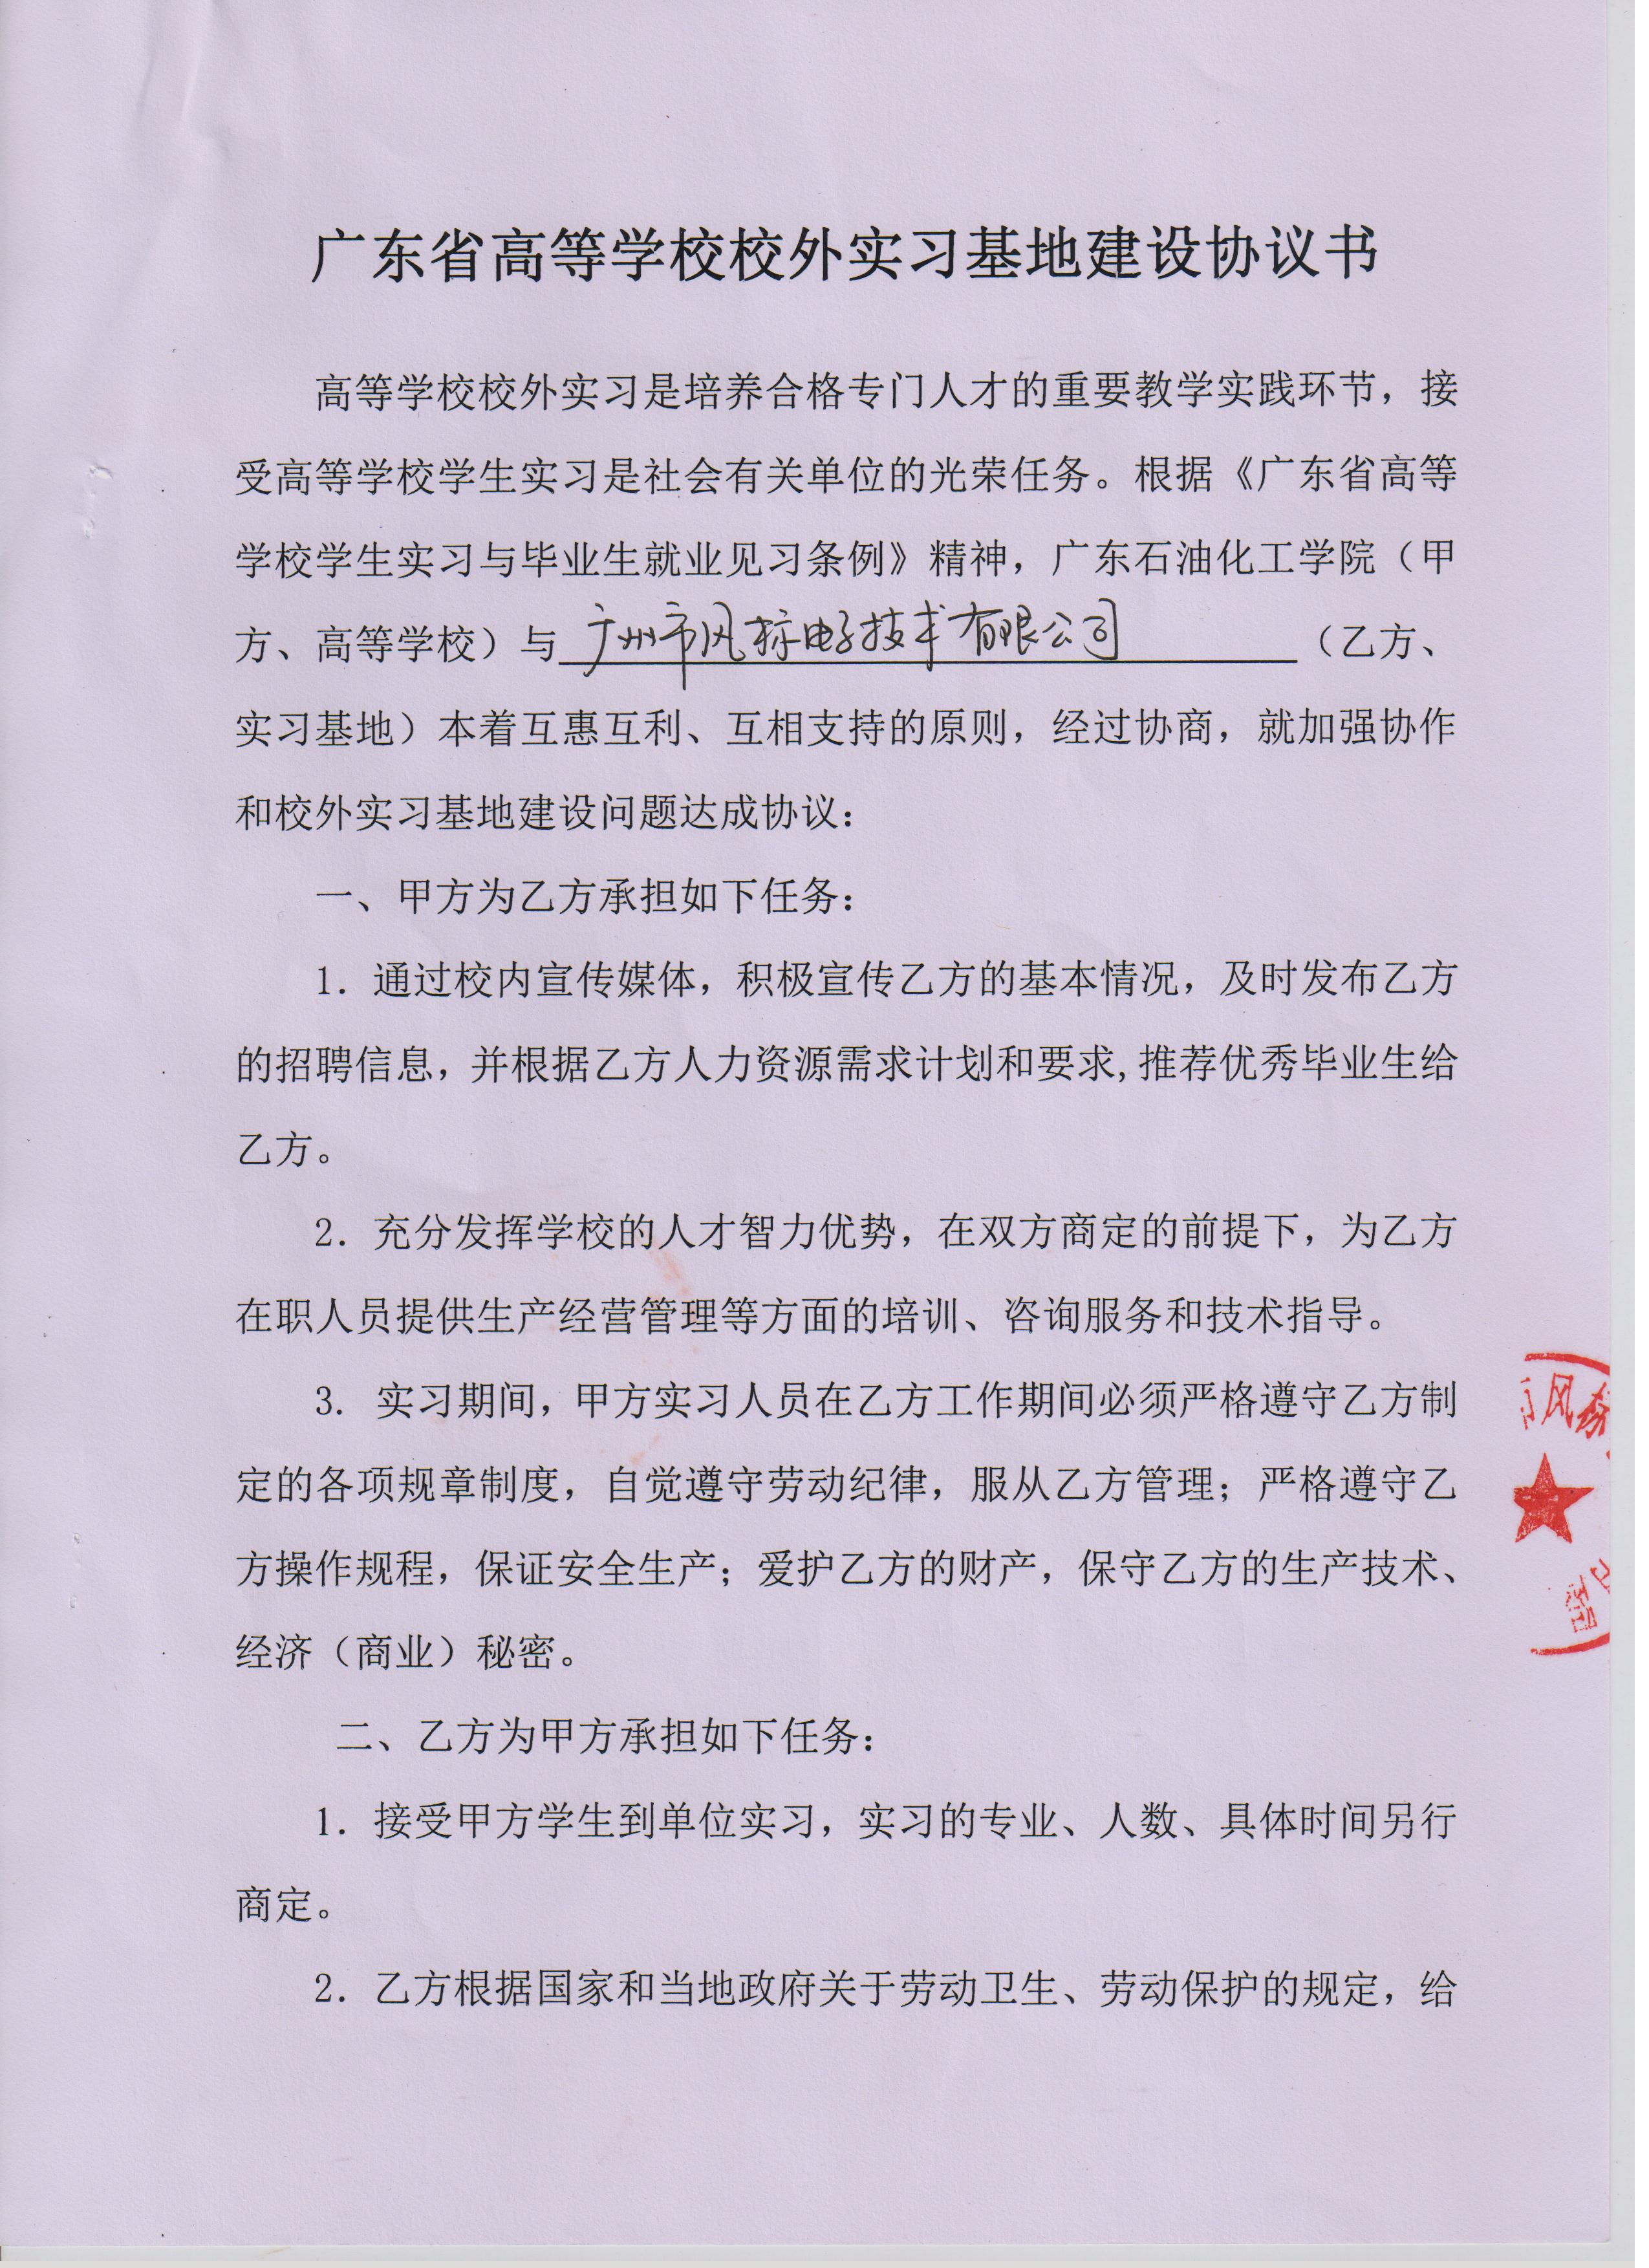 广东省高等学校校外实习基地建设协议书
高等学校校外实习是培养合格专门人才的重要教学实践环节，接
受高等学校学生实习是社会有关单位的光荣任务。根据《广东省高等
学校学生实习与毕业生就业见习条例》精神，广东石油化工学院（甲
方、高等学校）与广州市风标电子技术有限公司（乙方、
实习基地）本着互惠互利、互相支持的原则，经过协商，就加强协作
和校外实习基地建设问题达成协议：
一、甲方为乙方承担如下任务：
1. 通过校内宣传媒体，积极宣传乙方的基本情况，及时发布乙方
的招聘信息，并根据乙方人力资源需求计划和要求,推荐优秀毕业生给
乙方。
2. 充分发挥学校的人才智力优势，在双方商定的前提下，为乙方
在职人员提供生产经营管理等方面的培训、咨询服务和技术指导。
3. 实习期间，甲方实习人员在乙方工作期间必须严格遵守乙方制
定的各项规章制度，自觉遵守劳动纪律，服从乙方管理；严格遵守乙
方操作规程，保证安全生产；爱护乙方的财产，保守乙方的生产技术、
经济（商业）秘密。
二、乙方为甲方承担如下任务：
1. 接受甲方学生到单位实习，实习的专业、人数、具体时间另行
商定。
2. 乙方根据国家和当地政府关于劳动卫生、劳动保护的规定，给
风标